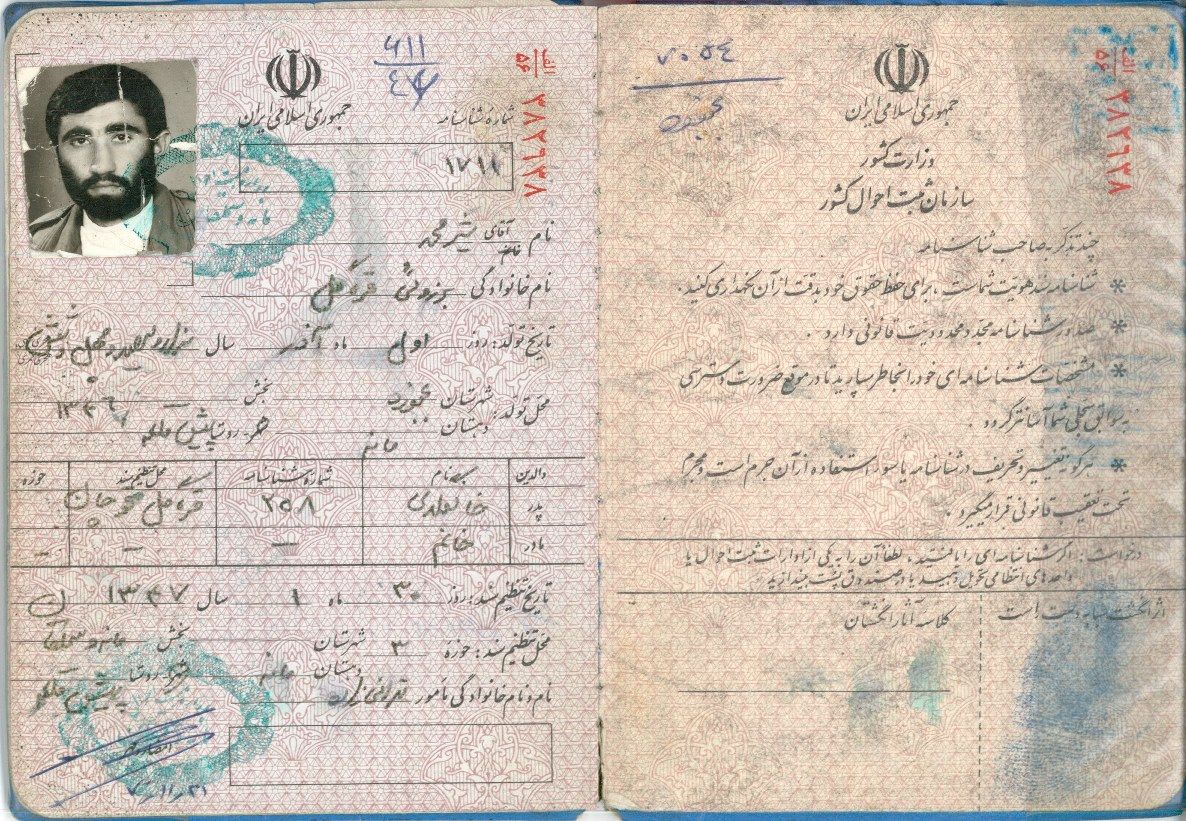 الف
۵۶
۳۸۲۶۳۸
۷۰۵۴
جمهوری اسلامی ایران
وزارت کشور
سازمان ثبت احوال کشور
چند تذکر به صاحب شناسنامه
* شناسنامه سند هویت شماست ، برای حفظ حقوق خود بدقت از آن نگهداری کنید .
* صدور شناسنامه مجدد محدودیت قانونی دارد .
* مشخصات شناسنامه ای خود را بخاطر بسپارید تا در موقع ضرورت دسترسی
به سوابق سجلی شما آسانتر گردد .
* هرگونه تغییر و تحریف در شناسنامه یا سوء استفاده از آن جرم است و مجرم
تحت تعقیب قانونی قرار میگیرد .
درخواست : اگر شناسنامه ای را یافتید ، لطفاً آن را به یکی از ادارات ثبت احوال یا
واحدهای انتظامی تحویل دهید یا در صندوق پست بیندازید .
اثر انگشت سبابه دست است
کلاسه آثار انگشتان
الف
۵۶
۳۸۲۶۳۸
۶۱۱
جمهوری اسلامی ایران
شماره شناسنامه
۱۷۱۱
نام آقای شیر محمد
خانم
نام خانوادگی برزوئی قره گل
تاریخ تولد : روز اول ماه آذر سال هزار و سیصد و چهل و شش
۱۳۴۶
محل تولد : شهرستان بجنورد بخش —
دهستان مانه شهر روستا
والدین نام شماره شناسنامه محل تنظیم سند حوزه
پدر ۲۵۸ —
مادر خانم — — —
تاریخ تنظیم سند : روز ۳۰ ماه ۱ سال ۱۳۴۷
محل تنظیم سند : حوزه ۳ شهرستان بخش
دهستان مانه شهر روستا
نام و نام خانوادگی مأمور